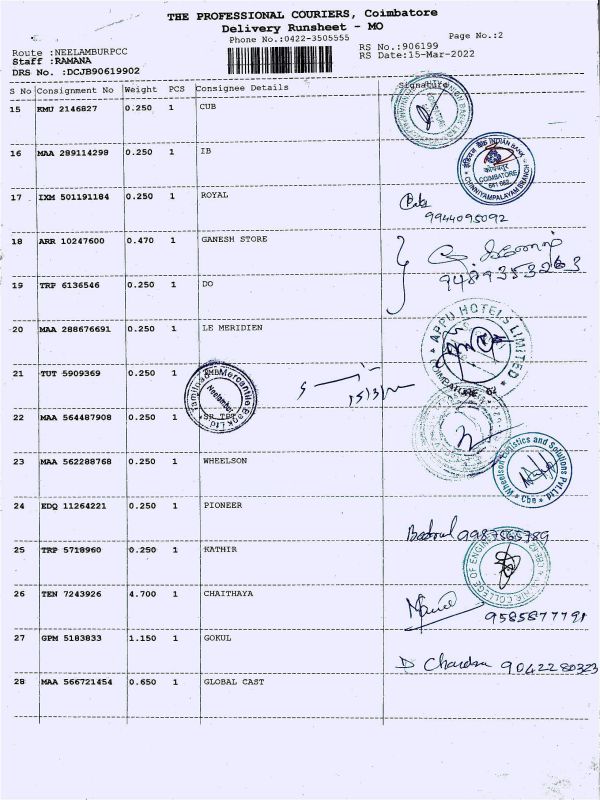 THE PROFESSIONAL COURIERS, Coimbatore
Delivery Runsheet - MO
Phone No.:0422-3505555
Page No.:2
Route :NEELAMBURPCC
Staff :RAMANA
DRS No. :DCJB90619902
RS No.:906199
RS Date:15-Mar-2022
S No Consignment No Weight PCS Consignee Details Signature
15 KMU 2146827 0.250 1 CUB
16 MAA 289114298 0.250 1 IB
INDIAN BANK
COIMBATORE
641 062
CHINNIYAMPALAYAM BRANCH
17 IXM 501191184 0.250 1 ROYAL
9944095092
18 ARR 10247600 0.470 1 GANESH STORE
9489353263
19 TRP 6136546 0.250 1 DO
20 MAA 288676691 0.250 1 LE MERIDIEN
APPU HOTELS LIMITED
21 TUT 5909369 0.250 1 TMB
Tamilnad Mercantile Bank Ltd
Neelambur
15/3/22
22 MAA 564487908 0.250 1 SR TBT
23 MAA 562288768 0.250 1 WHEELSON
Wheelson Logistics and Solutions Pvt Ltd
Cbe
24 EDQ 11264221 0.250 1 PIONEER
9987565789
25 TRP 5718960 0.250 1 KATHIR
COLLEGE OF ENGINE
26 TEN 7243926 4.700 1 CHAITHAYA
9585877791
27 GPM 5183833 1.150 1 GOKUL
D Chandru 9042280323
28 MAA 566721454 0.650 1 GLOBAL CAST